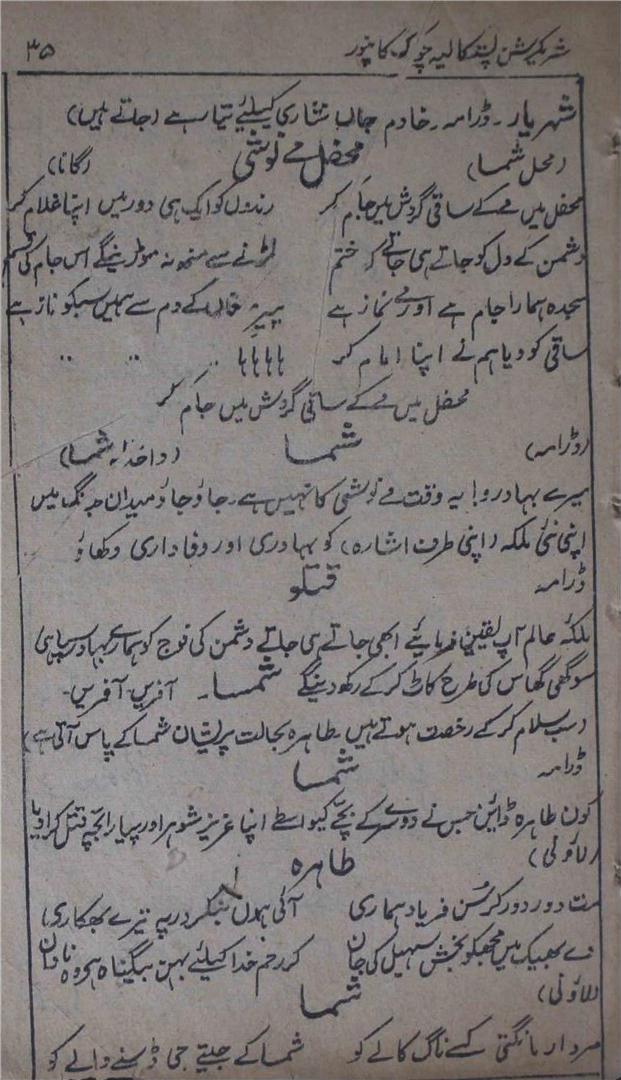 شریکرشن پستکالیہ چوک کانپور ۳۵
شہریار۔ ڈرامہ۔ خادم جاں نثاری کیلئے تیار ہے (جاتے ہیں)
(محل شما) محفل مے نوشی (گانا)
محفل میں مے کے ساقی گردش میں جام کر رندوں کو ایک ہی دور میں اپنا غلام کر
دشمن کے دل کو جاتے ہی جاتے کر ختم لڑنے سے منھ نہ موڑینگے اس جام کی قسم
سجدہ ہمارا جام ہے اور مے نماز ہے پیر مغاں کے دم سے ہمیں سبکو ناز ہے
ساقی کو دیا ہم نے اپنا امام کر ہا ہا ہا ہا .. .. ..
محفل میں مے کے ساقی گردش میں جام کر
(ڈرامہ) شما (داخلہ شما)
میرے بہادرو! یہ وقت مے نوشی کا نہیں ہے۔ جاؤ جاؤ میدان جنگ میں
اپنی نئی ملکہ (اپنی طرف اشارہ) کو بہادری اور وفاداری دکھاؤ
ڈرامہ قتلو
ملکۂ عالم آپ یقین فرمائیے ابھی جاتے ہی جاتے دشمن کی فوج کو ہمارے بہادر سپاہی
سوکھی گھاس کی طرح کاٹ کر کے رکھ دینگے شما۔ آفریں۔ آفریں۔
(سب سلام کر کے رخصت ہوتے ہیں۔ طاہرہ بحالت پریشان شما کے پاس آتی ہے)
ڈرامہ شما
کون طاہرہ ڈائن جس نے دوسرے کے بچے کیواسطے اپنا عزیز شوہر اور پیارا بچہ قتل کرا دیا
(لاؤنی) طاہرہ
مت دور دور کر سن فریاد ہماری آئی ہوں بنکر در پہ تیرے بھکاری
دے بھیک میں مجھکو بخش سہیل کی جان کر رحم خدا کیلئے بہن بیگناہ ہے وہ نادان
(لاؤنی) شما
مردار مانگتی کسے ناگ کالے کو شما کے جیتے جی ڈسنے والے کو